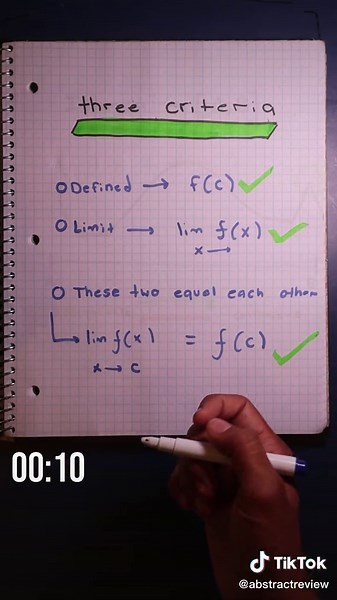 three criteria
Defined → f(c) ✓
Limit → lim f(x) ✓
x →
These two equal each other
↳ lim f(x) = f(c) ✓
x → c
00:10
TikTok
@abstractreview